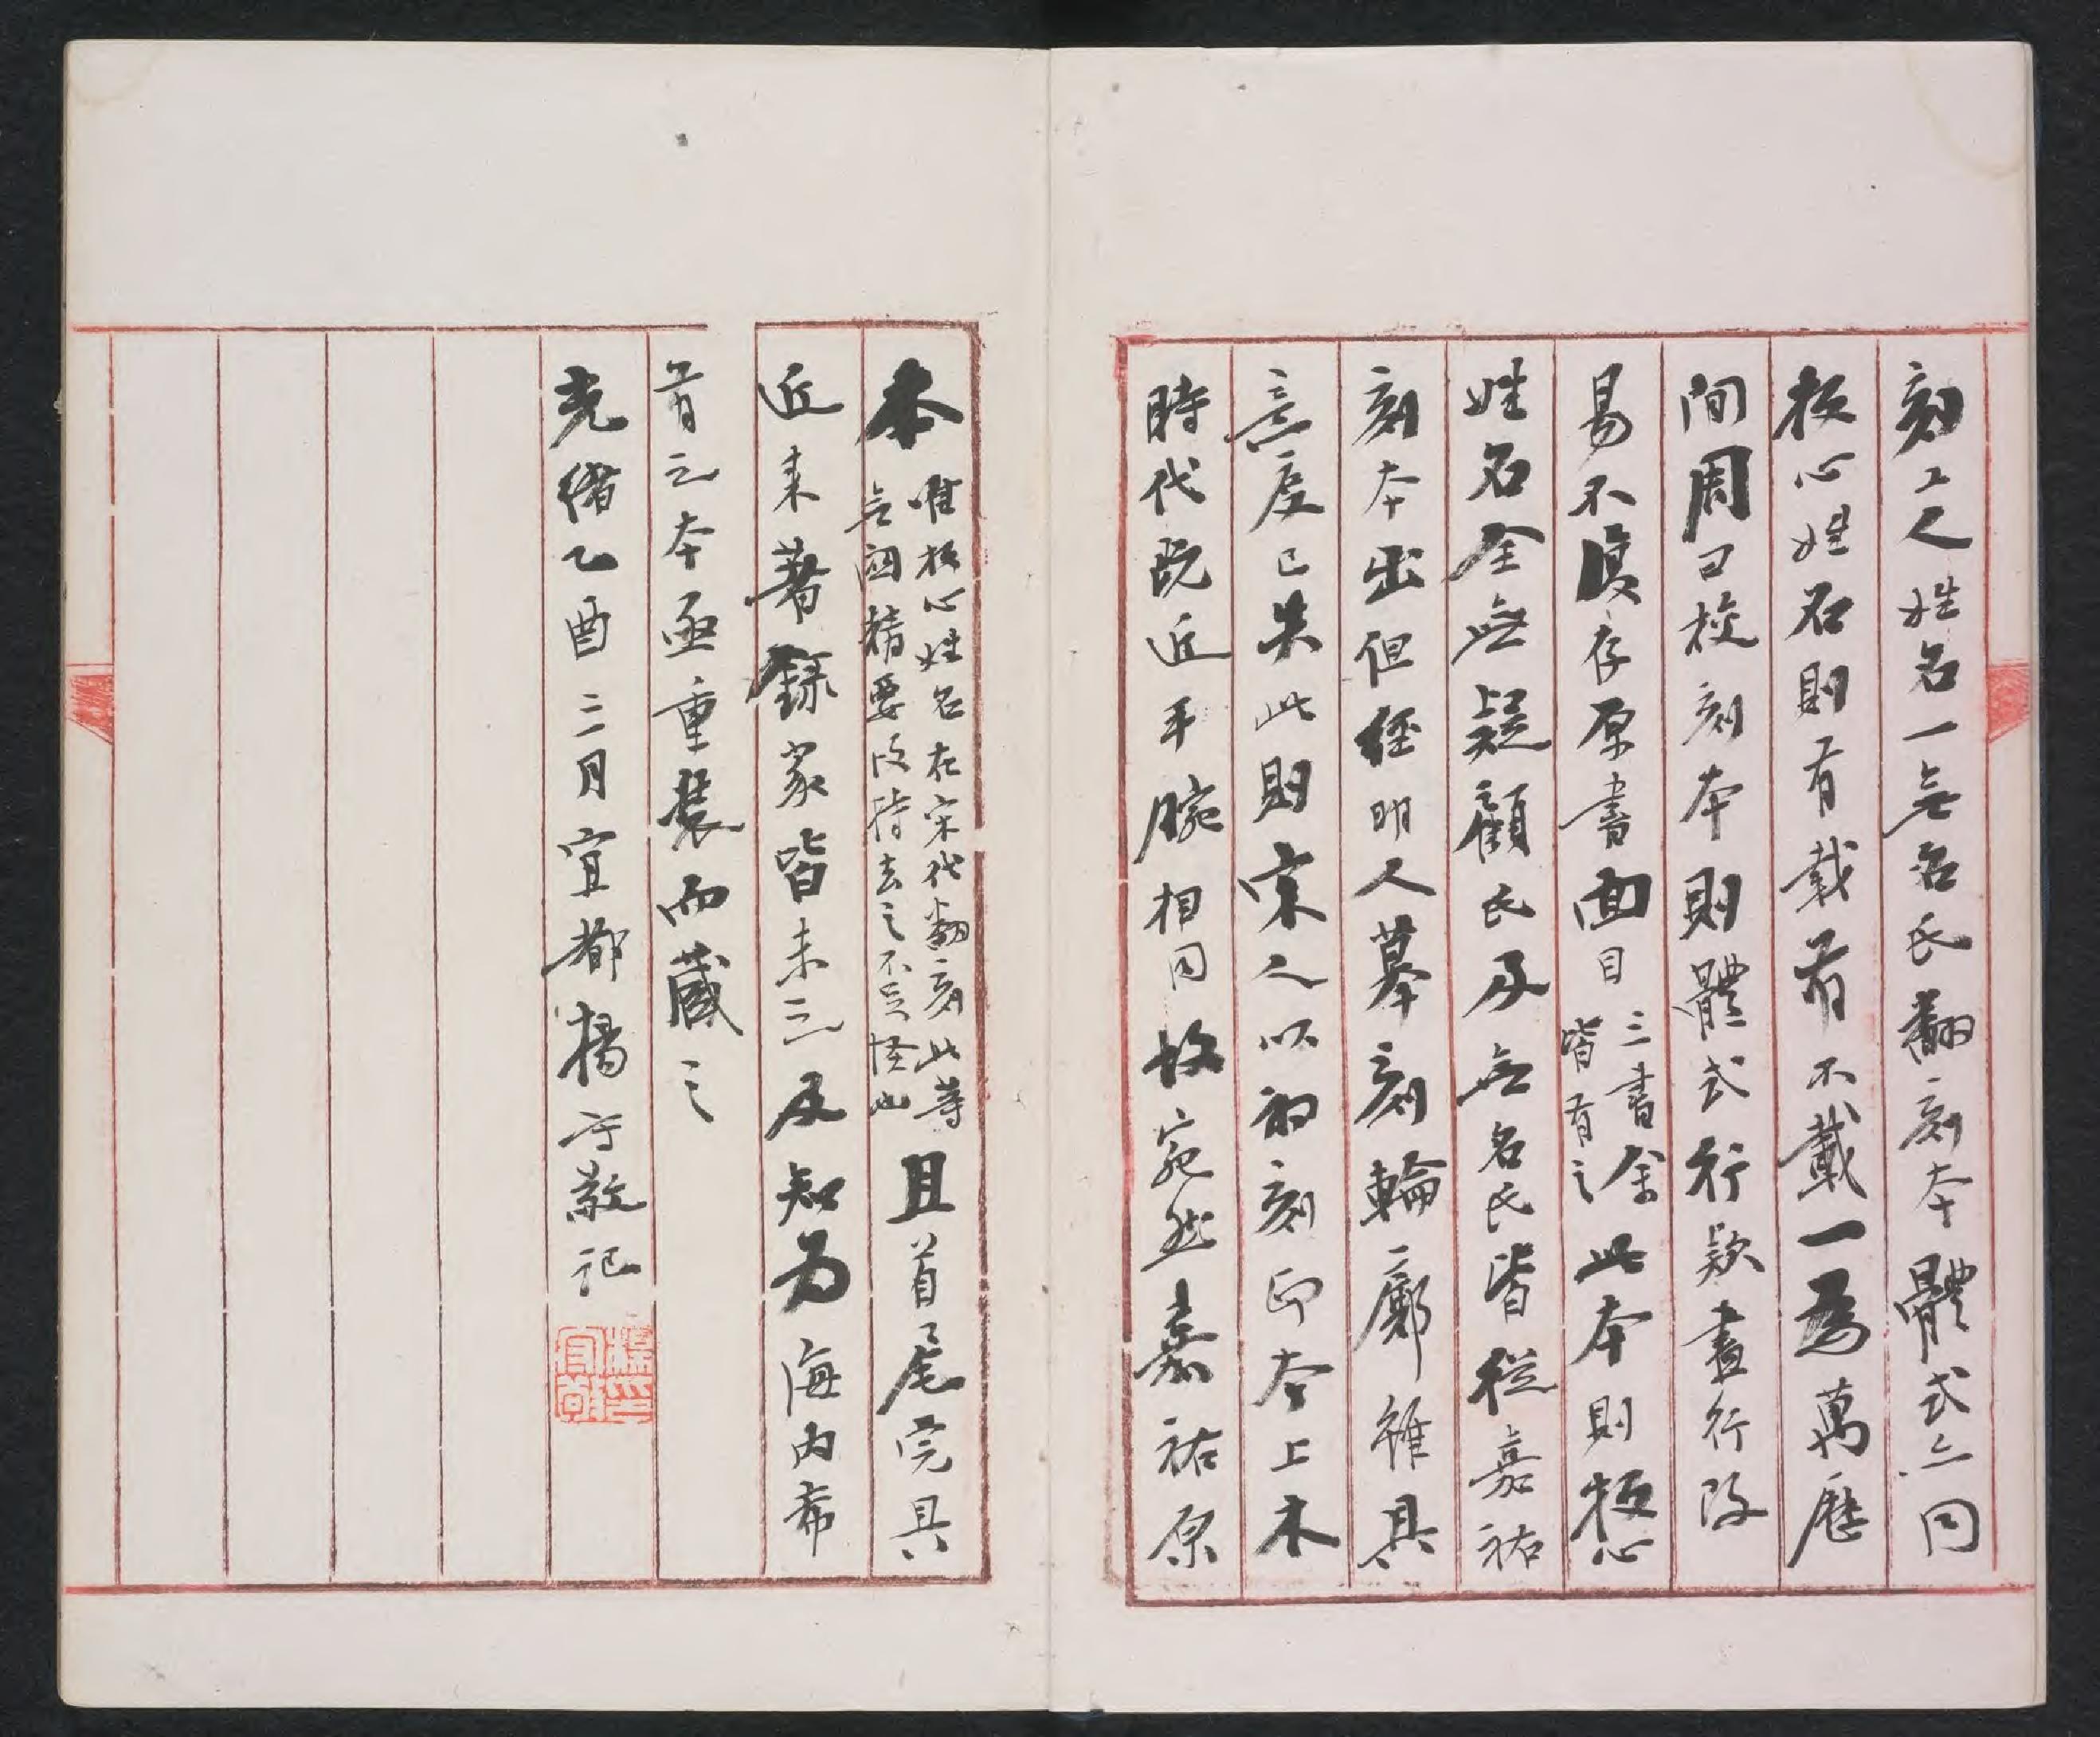 刻工人姓名一無名氏翻刻本體式亦同
板心姓名則有載有不載一為萬歷
間周曰校刻本則體式行款盡行改
易不復存原書面目
三書余
皆有之
此本則板心
姓名全無疑顧氏及無名氏皆從嘉祐
刻本出但經明人摹刻輪廓雖具
意度已失此則宋人以初刻印本上木
時代既近手腕相同故宛然嘉祐原
本
唯板心姓名在宋代翻刻此等
無關精要改特去之不足怪也
且首尾完具
近來著錄家皆未言及知為海內希
有之本亟重裝而藏之
光緒乙酉二月宜都楊守敬記
楊印守敬